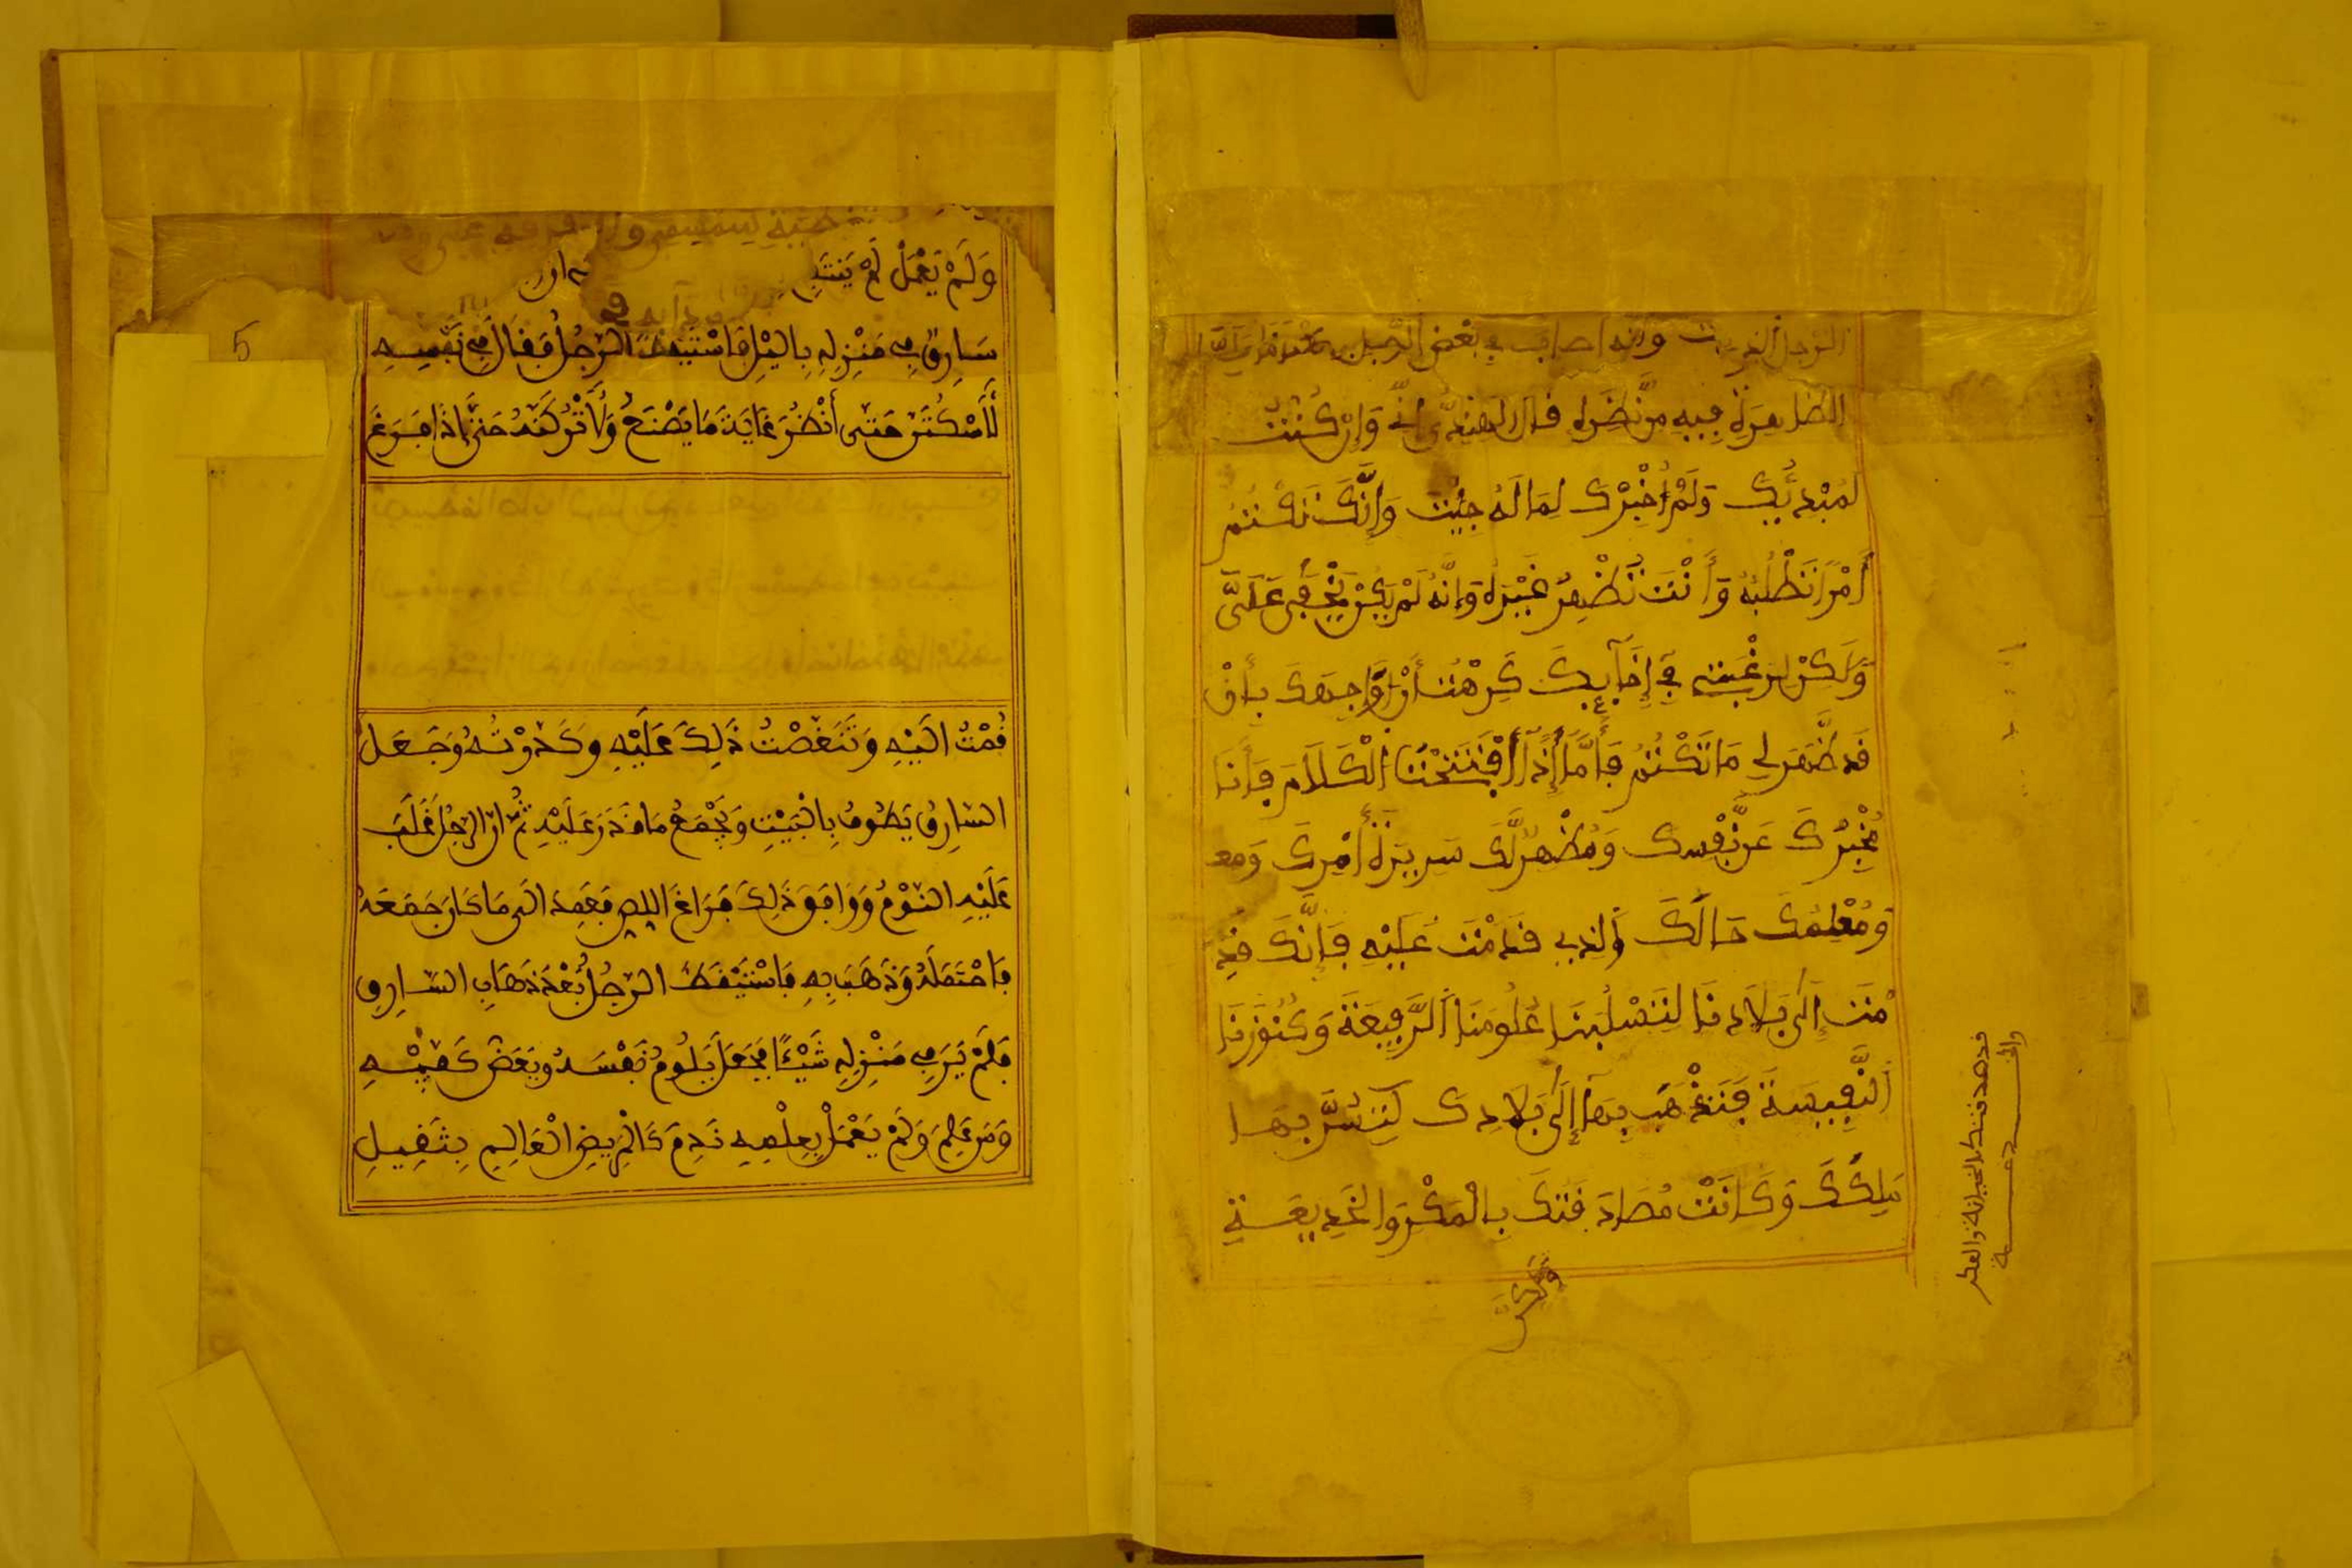 الرجل الغريب وانه اصاب في بعض
الظاهرة فيه من نظره قال الهندي اني وَإن كُنتُ
لَمُبْدِيكَ وَلَمْ أُخْبِرْكَ لِمَا لَهُ جِيْتَ وَإِنَّكَ تَكْتُمُ
أَمْرًا تَطْلُبُهُ وَأَنْتَ تُظْهِرُ غَيْرَهُ وَإِنَّهُ لَمْ يَكُنْ يَخْفَى عَلَيَّ
وَلَكِنْ لِرَغْبَتِي فِي إِخَآيِكَ كَرِهْتُ أَنْ أُوَاجِهَكَ بِأَنْ
قَد ظَّهَرَ لِي مَا تَكْتُمُ فَأَمَّا إِذَا افْتَتَحْنَا الْكَلَامَ فَأَنَا
مُخْبِرُكَ عَن نَّفْسِكَ وَمُظْهِرٌ لَّكَ سَرِيرَةَ أَمْرِكَ وَمع
وَمُعْلِمُكَ حَالَكَ الذِي قَدِمْتَ عَلَيْهِ فَإِنَّكَ قَدِ
مْتَ إِلَى بَلَادِنَا لِتَسْلُبَنَا عُلُومَنَا الرَّفِيعَةَ وَكُنُوزَنَا
النَّفِيسَةَ فَتَذْهَبَ بِهَا إِلَى بَلَادِكَ لِتَسُرَّ بِهَا
مَلِكَكَ وَكَانَتْ مُصَادَقَتُكَ بِالْمَكْرِ وَالْخَدِيعَةِ
وَلَكِنَّ
وَلَمْ يَعْمَلْ لَمْ يَنتَفِع
سَارِقٌ فِي مَنْزِلِهِ بِاليْلِ فَاسْتَيْقَظَ الرَّجُلُ فَقَالَ فِي نَفْسِهِ
لَأَسْكُتَنَّ حَتَّى أَنْظُرَ غَايَةَ مَا يَصْنَعُ وَلَأَتْرُكَنَّهُ حَتَّى إِذَا فَرَغَ
قُمْتُ الَيْهِ وَنَغَصْتُ ذَلِكَ عَلَيْهِ وَكَدَّرْتُهُ وَجَعَلَ
السَّارِقُ يَطُوفُ بِالْبَيْتِ وَيَجْمَعُ مَا قَدَرَ عَلَيْهِ ثُمَّ انَّ الرَّجُلَ غَلَبَ
عَلَيْهِ النَّوْمُ وَوَافَقَ ذَلِكَ فَرَاغَ اللِّصِّ فَعَمِدَ الَى مَا كَانَ جَمَعَهُ
فَاحْتَمَلَهُ وَذَهَبَ بِهِ فَاسْتَيْقَظَ الرَّجُلُ بَعْدَ ذَهَابِ السَّارِقِ
فَلَمْ يَرَ فِي مَنْزِلِهِ شَيْئًا فَجَعَلَ يَلُومُ نَفْسَهُ وَيَعَضُّ كَفَّيْهِ
وَمَن عَلِمَ وَلَمْ يَعْمَلْ بِعِلْمِهِ نَدِمَ كَالْمَرِيضِ الْعَالِمِ بِثَقِيلِ
5